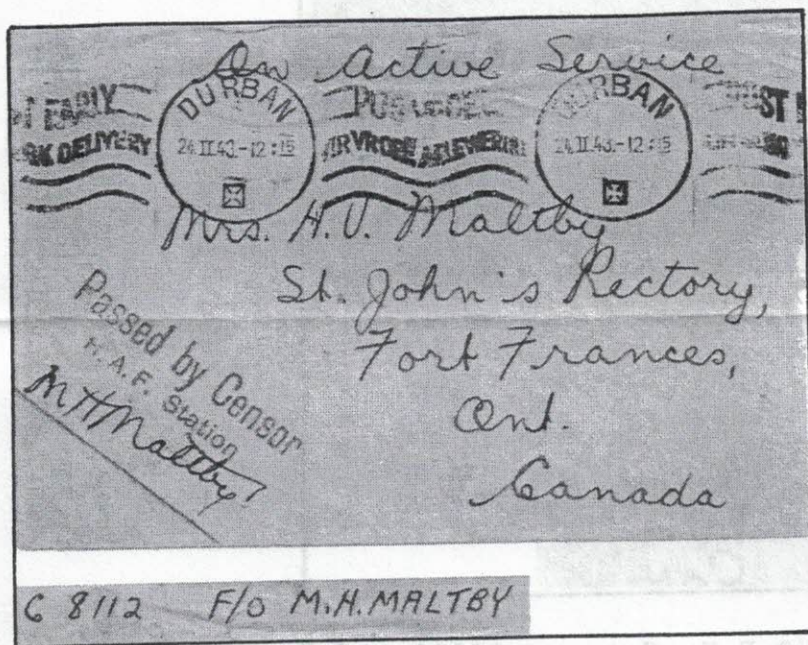 On Active Service
EARLY
DURBAN
DURBAN
DELIVERY
24 II 43.-12:15
VIR VROEË AFLEWERING
24 II 43.-12:15
Mrs. H.V. Maltby
St. John's Rectory,
Fort Frances,
Ont.
Canada
Passed by Censor
R.A.F. Station
M H Maltby
C 8112 F/O M.H. MALTBY